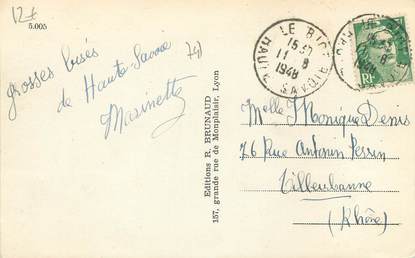 12€
5.005
grosses bises
de Haute Savoie
Marinette
74
LE BIOT
15 30
11 - 8
1948
HAUTE SAVOIE
RF
Editions R. BRUNAUD
157, grande rue de Monplaisir, Lyon
Melle Monique Denis
76 Rue Antonin Perrin
Villeurbanne
(Rhône)